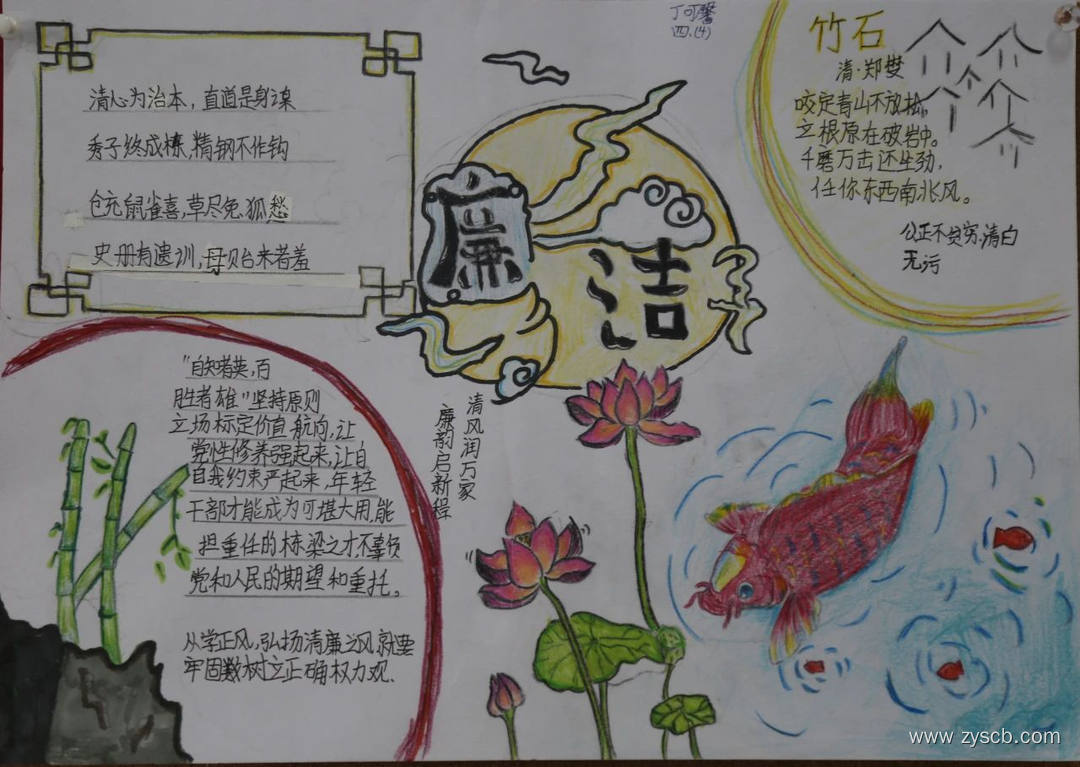 清心为治本，直道是身谋
秀子终成栋，精钢不作钩
仓充鼠雀喜，草尽兔狐愁
史册有遗训，母贝台来者羞
丁可馨
四.(4)
廉洁
竹石
清·郑燮
咬定青山不放松，
立根原在破岩中。
千磨万击还坚劲，
任你东西南北风。
公正不贫穷，清白
无污
"自知者英，百
胜者雄"坚持原则
立场标定价值航向，让
党性修养强起来，让自
自我约束严起来，年轻
干部才能成为可堪大用，能
担重任的栋梁之才不辜负
党和人民的期望和重托。
从学正风，弘扬清廉之风就要
牢固数树立正确权力观.
清风润万家
廉韵启新程
www.zyscb.com